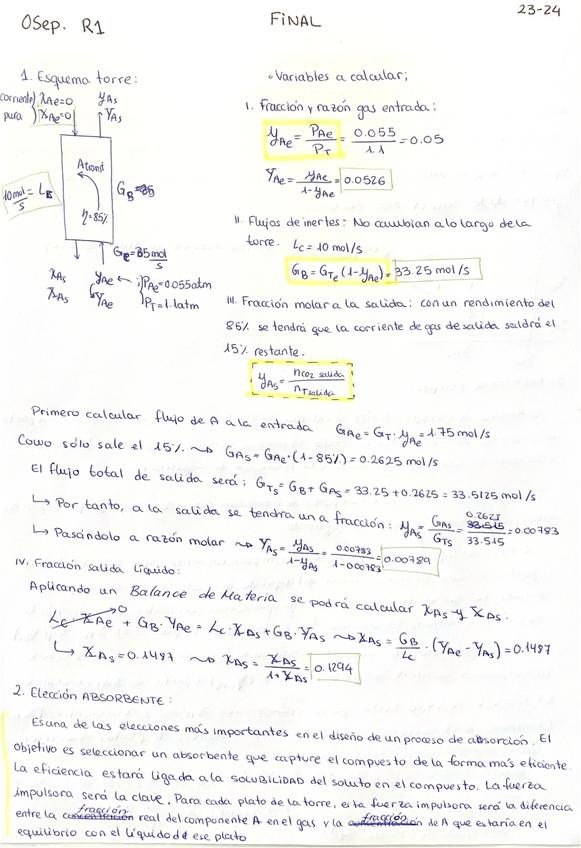 OSep. R1
FINAL
23-24
1. Esquema torre:
corriente) XAe=0
pura ) XAe=0
yAs
YAs
Atrans
η=85%
10 mol/s = LB
GB
Ge=35 mol/s
xAs
XAs
yAe ← ; PAe=0.055atm
YAe PT=1.1atm
◦ Variables a calcular;
I. Fracción y razón gas entrada:
yAe = PAe/PT = 0.055/1.1 = 0.05
YAe = yAe/1-yAe = 0.0526
II. Flujos de inertes: No cambian a lo largo de la
torre. Lc = 10 mol/s
GB = GTe (1-yAe) = 33.25 mol/s
III. Fracción molar a la salida: con un rendimiento del
85% se tendrá que la corriente de gas de salida saldrá el
15% restante.
yAs = nCO2 salida / nT salida
Primero calcular flujo de A a la entrada GAe = GT · yAe = 1.75 mol/s
Como sólo sale el 15% ⇝ GAs = GAe · (1-85%) = 0.2625 mol/s
El flujo total de salida será: GTs = GB + GAs = 33.25 + 0.2625 = 33.5125 mol/s
↳ Por tanto, a la salida se tendra una fracción: yAs = GAs/GTs = 0.2625/33.515 = 0.00783
↳ Pasándolo a razón molar ⇝ YAs = yAs/1-yAs = 0.00783/1-0.00783 = 0.00789
IV. Fracción salida líquido:
Aplicando un Balance de Materia se podrá calcular xAs y XAs.
Lc XAe→0 + GB · YAe = Lc · XAs + GB · YAs ⇝ XAs = GB/Lc · (YAe - YAs) = 0.1487
↳ XAs = 0.1487 ⇝ xAs = XAs/1+XAs = 0.1294
2. Elección ABSORBENTE:
Es una de las elecciones más importantes en el diseño de un proceso de absorción. El
objetivo es seleccionar un absorbente que capture el compuesto de la forma más eficiente.
La eficiencia estará ligada a la SOLUBILIDAD del soluto en el compuesto. La fuerza
impulsora será la clave, Para cada plato de la torre, esta fuerza impulsora será la diferencia
entre la fracción real del componente A en el gas y la fracción de A que estaría en el
equilibrio con el líquido de ese plato